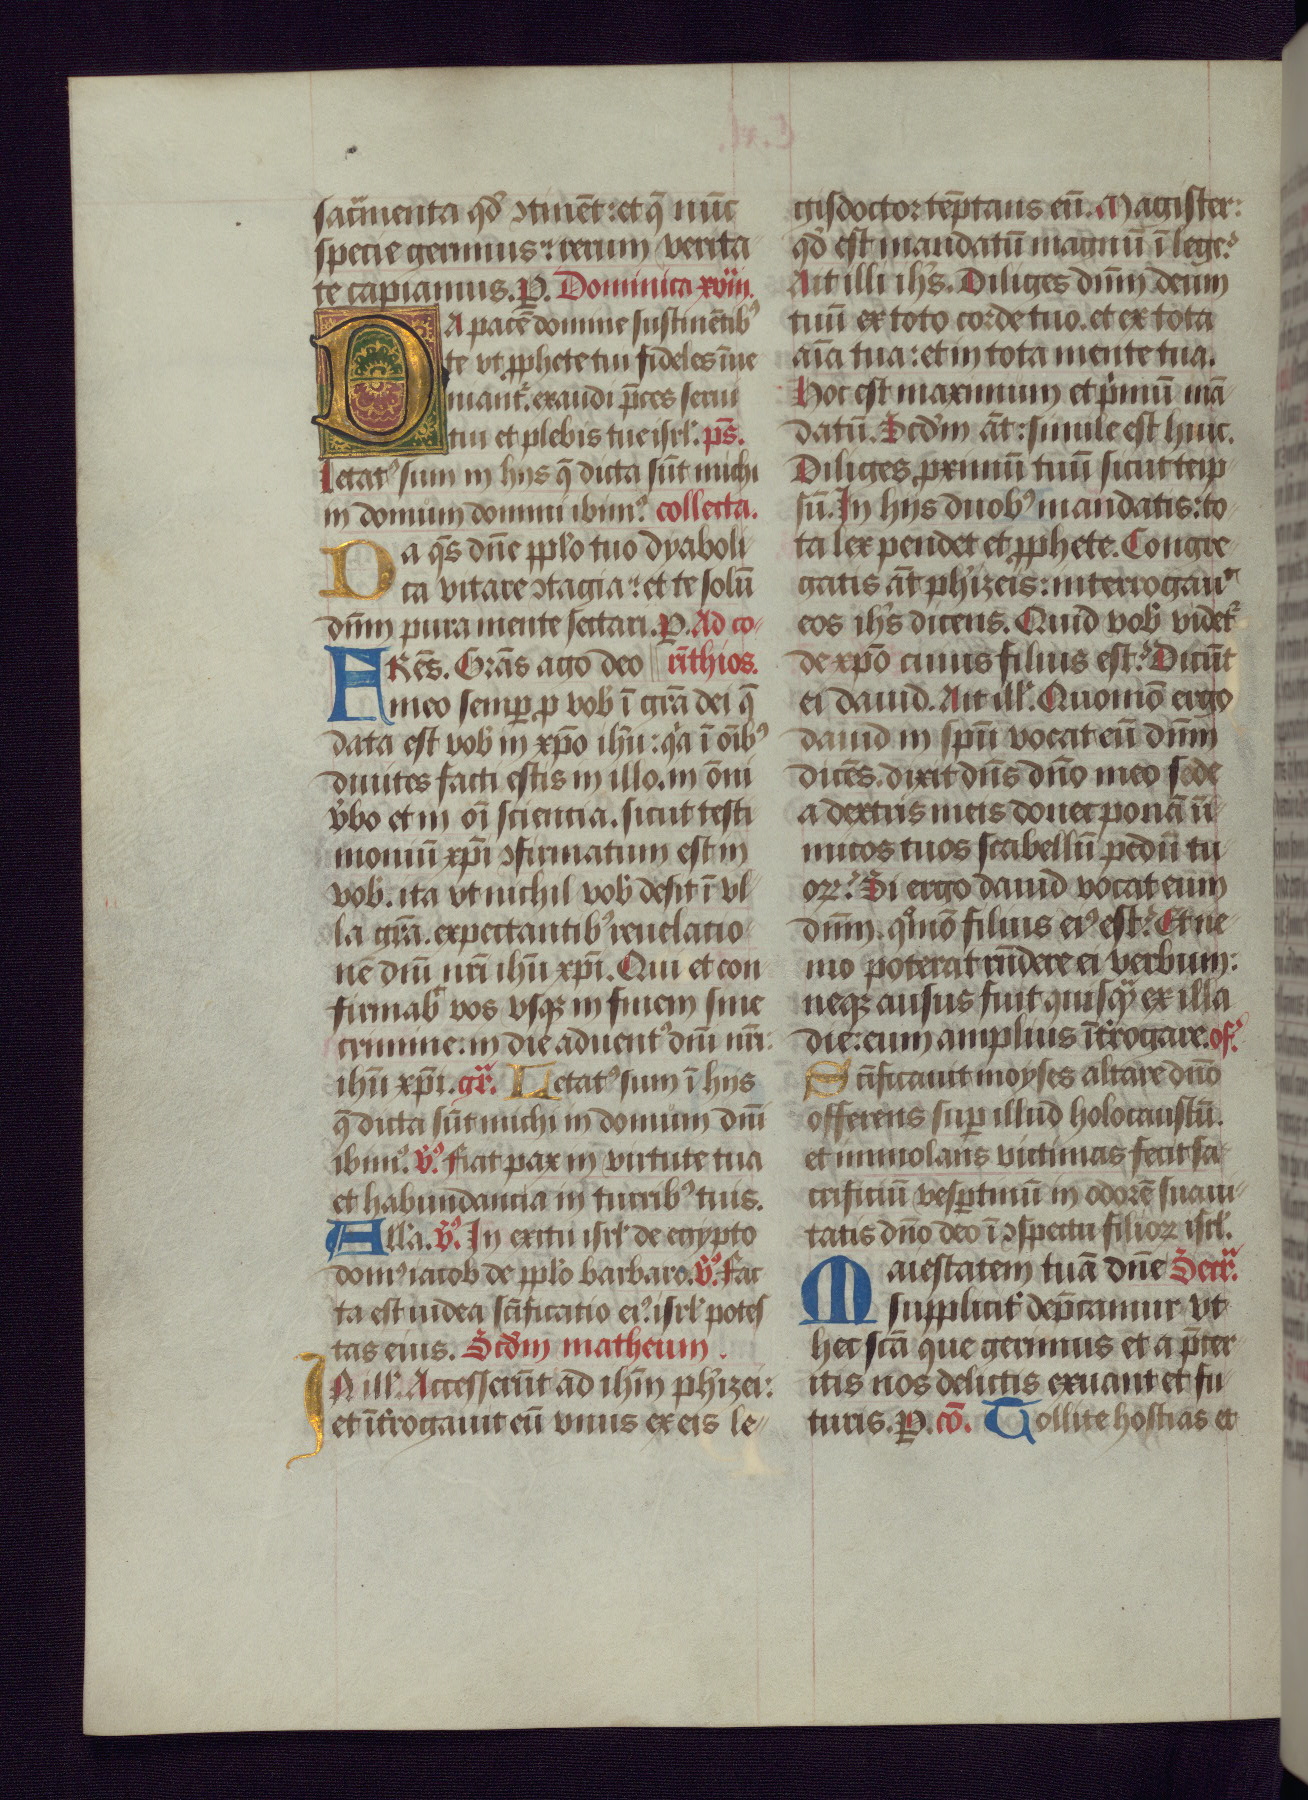 sac̄menta qd̄ ꝯtinēt: et q̄ nūc
specie gerimus: rerum verita
te capiamus. P. Dominica xviij.
DA pacē domine sustinētibꝰ
te vt ꝓphete tui fideles īue
niant᷑. exaudi p̄ces serui
tui et plebis tue isrl̄. ps̄.
Letatꝰ sum in hijs q̄ dicta sūt michi
in domum domini ibimꝰ. collecta.
Da q̄s dn̄e ppl̄o tuo dyaboli
ca vitare ꝯtagia: et te solū
dn̄m pura mente sectari. P. Ad co-
FRēs. Grās ago deo rīthios.
meo semꝑ ꝓ vob̄ ī grā dei q̄
data est vob̄ in xp̄o ih̄u: qͥa ī oībꝰ
diuites facti estis in illo. in om̄i
v̄bo et in oī scientia. sicut testi
moniū xp̄i ꝯfirmatum est in
vob̄. ita vt nichil vob̄ desit ī vl-
la grā. expectantibꝰ reuelatio
nē dn̄i nr̄i ih̄u xp̄i. Qui et con
firmab̄ vos vsqꝫ in finem sine
crimine: in die aduentꝰ dn̄i nr̄i
ih̄u xp̄i. gr̄. Letatꝰ sum ī hijs
q̄ dicta sūt michi in domum dn̄i
ibimꝰ. v̄ꝰ. fiat pax in virtute tua
et habundancia in turribꝰ tuis.
All̄a. v̄ꝰ. In exitu isrl̄ de egypto
domꝰ iacob de ppl̄o barbaro. v̄ꝰ. fac
ta est iudea scīficatio eiꝰ. isrl̄ potes
tas eius. Scd̄m matheum.
IN ill̄. Accesserūt ad ih̄m ph̄izei:
et īt̄rogauit eū vnus ex eis le-
gisdoctor tēptans eū. Magister:
qd̄ est mandatū magnū ī lege?
Ait illi ih̄s. Diliges dn̄m deum
tuū ex toto corde tuo. et ex tota
aīa tua: et in tota mente tua.
Hoc est maximum et pͥmū mā
datū. Scd̄m āt: simile est huic.
Diliges ꝓximū tuū sicut teip
sū. In hijs duobꝰ mandatis: to-
ta lex pendet et ꝓphete. Congre-
gatis āt ph̄izeis: interrogau᷑
eos ih̄s dicens. Quid vob̄ videt᷑
de xp̄o cuius filius est? Dicūt
ei dauid. Ait ill̄. Quomō ergo
dauid in spū vocat eū dn̄m
dicēs. dixit dn̄s dn̄o meo sede
a dextris meis donec ponā ī-
micos tuos scabellū pedū tu
oꝝ? Si ergo dauid vocat eum
dn̄m. qͦmō filius eiꝰ est? Et ne-
mo poterat rn̄dere ei verbum:
neqꝫ ausus fuit quisqͣ̄ ex illa
die: eum amplius īt̄rogare. of̄.
Scīficauit moyses altare dn̄o
offerens suꝑ illud holocaustū.
et immolans victimas fecit sa-
crificiū vesꝑtinū in odorē suaui-
tatis dn̄o deo ī ꝯspectu filioꝝ isrl̄.
Maiestatem tuā dn̄e Secr̄.
supplicit̄ dep̄camur vt
hec scā que gerimus et a p̄ter
itis nos delictis exuant et fu
turis. P. cō. Tollite hostias et